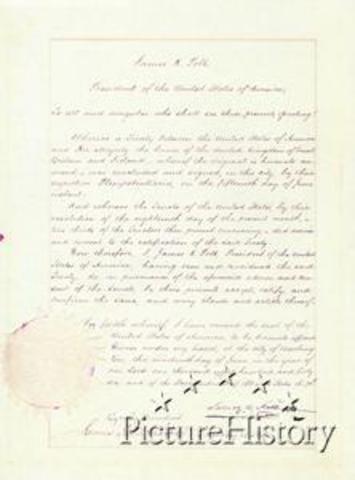 James K. Polk
President of the United States of America,
To all and singular who shall see these presents, Greeting!
Whereas a Treaty between the United States of America
and Her Majesty the Queen of the United Kingdom of Great
Britain and Ireland, whereof the original is hereunto an-
nexed, was concluded and signed, in this city, by their
Plenipotentiaries, on the fifteenth day of June
instant.
And whereas the Senate of the United States, by their
resolution of the eighteenth day of the present month,
two thirds of the Senators then present concurring, did advise
and consent to the ratification of the said Treaty.
Now therefore, I, James K. Polk, President of the United
States of America, having seen and considered the said
Treaty, do, in pursuance of the aforesaid advice and con-
sent of the Senate, by these presents accept, ratify and
confirm the same, and every clause and article thereof.
In faith whereof, I have caused the seal of the
United States of America, to be hereunto affixed
Given under my hand, at the city of Washing-
ton, the nineteenth day of June in the year of
our Lord one thousand eight hundred and forty
and of the
James K. Polk
PictureHistory